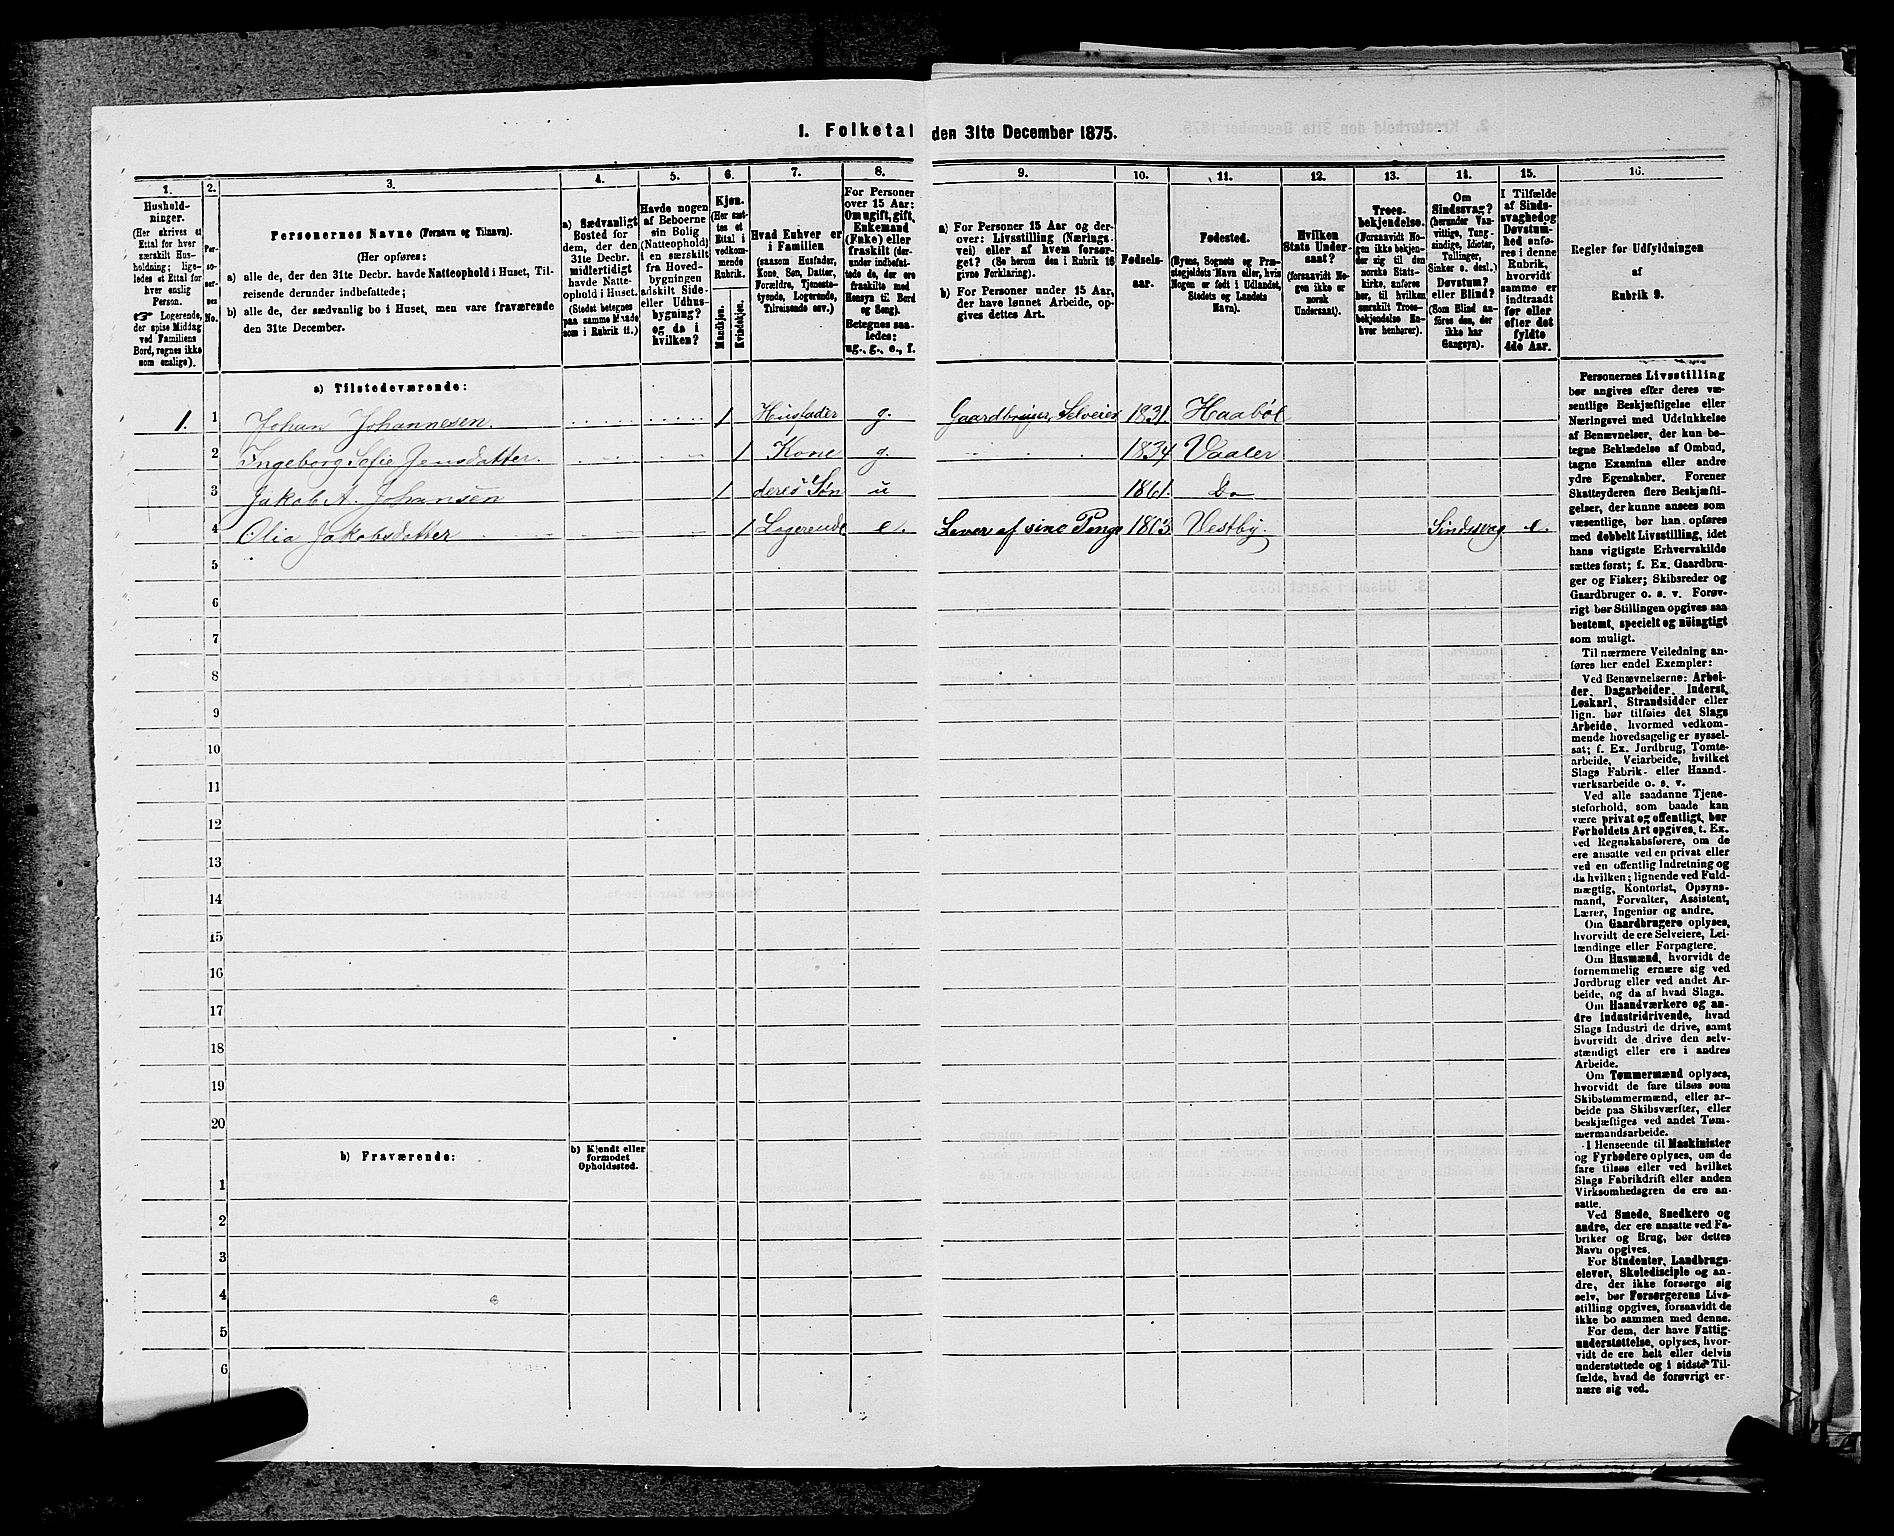 1. Folketal den 31te December 1875.
1. 2. 3. 4. 5. 6. 7. 8. 9. 10. 11. 12. 13. 14. 15. 16.
Hushold-
ninger.
(Her skrives et
Ettal for hver
særskilt Hus-
holdning; lige-
ledes et Ettal for
hver enslig
Person.
☞ Logerende,
der spise Middag
ved Familiens
Bord, regnes ikke
som enslige).
Per-
so-
ner-
nes
No.
Personernes Navne (Fornavn og Tilnavn).
(Her opføres:
a) alle de, der den 31te Decbr. havde Natteophold i Huset, Til-
reisende derunder indbefattede;
b) alle de, der sædvanlig bo i Huset, men vare fraværende
den 31te December.
a) Sædvanligt
Bosted for
dem, der den
31te Decbr.
midlertidigt
havde Natte-
ophold i Huset.
(Stedet betegnes
paa samme Maade
som i Rubrik 11.)
Havde nogen
af Beboerne
sin Bolig
(Natteophold)
i en særskilt
fra Hoved-
bygningen
adskilt Side-
eller Udhus-
bygning?
og da i
hvilken?
Kjøn.
(Her sæt-
tes et
Ettal i
vedkom-
mende
Rubrik.
Mandkjøn.
Kvindekjøn.
Hvad Enhver er
i Familien
(saasom Husfader,
Kone, Søn, Datter,
Forældre, Tjeneste-
tyende, Logerende,
Tilreisende osv.)
For Personer
over 15 Aar:
Om ugift, gift,
Enkemand
(Enke) eller
fraskilt (der-
under indbefat-
tede de, der ere
fraskilte med
Hensyn til Bord
og Seng).
Betegnes saa-
ledes:
ug., g., e., f.
a) For Personer 15 Aar og der-
over: Livsstilling (Nærings-
vei) eller af hvem forsør-
get? (Se herom den i Rubrik 16
givne Forklaring).
b) For Personer under 15 Aar,
der have lønnet Arbeide, op-
gives dettes Art.
Fødsels-
aar.
Fødested.
(Byens, Sognets og Præ-
stegjeldets Navn eller, hvis
Nogen er født i Udlandet,
Stedets og Landets
Navn).
Hvilken
Stats Under-
saat?
(forsaavidt No-
gen ikke er
norsk
Undersaat).
Troes-
bekjendelse.
(Forsaavidt No-
gen ikke bekjen-
der sig til den
norske Stats-
kirke, anføres
her, til hvilken
særskilt Troes-
bekjendelse En-
hver henhører).
Om
Sindssvag?
(herunder Van-
vittige, Tung-
sindige, Idioter,
Tullinger,
Sinker o. desl.)
Døvstum?
eller Blind?
(Som Blind an-
føres den, der
ikke har
Gangsyn).
I Tilfælde
af Sinds-
svaghed og
Døvstum-
hed anfø-
res i denne
Rubrik,
hvorvidt
samme er
indtraadt
før eller
efter det
fyldte
4de Aar.
Regler for Udfyldningen
af
Rubrik 9.
a) Tilstedeværende:
1. 1 Johan Johannesen. 1 Husfader g. Gaardbruger, Selveier 1831. Haabøl
2 Ingeborg Sofie Jensdatter. 1 Kone g. 1834 Vaaler
3 Jakob A. Johansen 1 deres Søn u 1861. Do
4 Olia Jakobsdatter 1 Logerende e. Lever af sine Penge 1803. Vestby. Sindssvag e.
5
6
7
8
9
10
11
12
13
14
15
16
17
18
19
20
b) Fraværende:
b) Kjendt eller
formodet
Opholdssted.
1
2
3
4
5
6
Personernes Livsstilling
bør angives efter deres væ-
sentlige Beskjæftigelse eller
Næringsvei med Udelukkelse
af Benævnelser, der kun be-
tegne Beklædelse af Ombud,
tagne Examina eller andre
ydre Egenskaber. Forener
Skatteyderen flere Beskjæfti-
gelser, der kunne ansees som
væsentlige, bør han opføres
med dobbelt Livsstilling, idet
hans vigtigste Erhvervskilde
sættes først; f. Ex. Gaardbru-
ger og Fisker; Skibsreder og
Gaardbruger o. s. v. Forøv-
rigt bør Stillingen opgives saa
bestemt, specielt og nøiagtigt
som muligt.
Til nærmere Veiledning an-
føres her endel Exempler:
Ved Benævnelserne: Arbei-
der, Dagarbeider, Inderst,
Løskarl, Strandsidder eller
lign. bør tilføies det Slags
Arbeide, hvormed vedkom-
mende hovedsagelig er syssel-
sat; f. Ex. Jordbrug, Tomte-
arbeide, Veiarbeide, hvilket
Slags Fabrik- eller Haand-
værksarbeide o. s. v.
Ved alle saadanne Tjene-
steforhold, som baade kan
være privat og offentligt, bør
Forholdets Art opgives, t. Ex.
ved Regnskabsførere, om de
ere ansatte ved en privat eller
ved en offentlig Indretning og
da hvilken; lignende ved Fuld-
mægtig, Kontorist, Opsyns-
mand, Forvalter, Assistent,
Lærer, Ingeniør og andre.
Om Gaardbrugere oplyses,
hvorvidt de ere Selveiere, Lei-
lændinge eller Forpagtere.
Om Husmænd, hvorvidt de
fornemmelig ernære sig ved
Jordbrug eller ved andet Ar-
beide, og da af hvad Slags.
Om Haandværkere og an-
dre industridrivende, hvad
Slags Industri de drive, samt
hvorvidt de drive den selv-
stændigt eller ere i andres
Arbeide.
Om Tømmermænd oplyses,
hvorvidt de fare tilsøs som
Skibstømmermænd, eller ar-
beide paa Skibsværfter, eller
beskjæftiges ved andet Tøm-
mermandsarbeide.
I Henseende til Maskinister
og Fyrbødere oplyses, om de
fare tilsøs eller ved hvilket
Slags Fabrikdrift eller anden
Virksomhedsgren de ere an-
satte.
Ved Smede, Snedkere og
andre, der ere ansatte ved Fa-
briker og Brug, bør dettes
Navn opgives.
For Studenter, Landbrugs-
elever, Skoledisciple og an-
dre, der ikke forsørge sig
selv, bør Forsørgerens Livs-
stilling opgives, forsaavidt de
ikke bo sammen med denne.
For dem, der have Fattig-
understøttelse, oplyses, hvor-
vidt de ere helt eller delvis
understøttede og i sidste Til-
fælde, hvad de forøvrigt er-
nære sig ved.